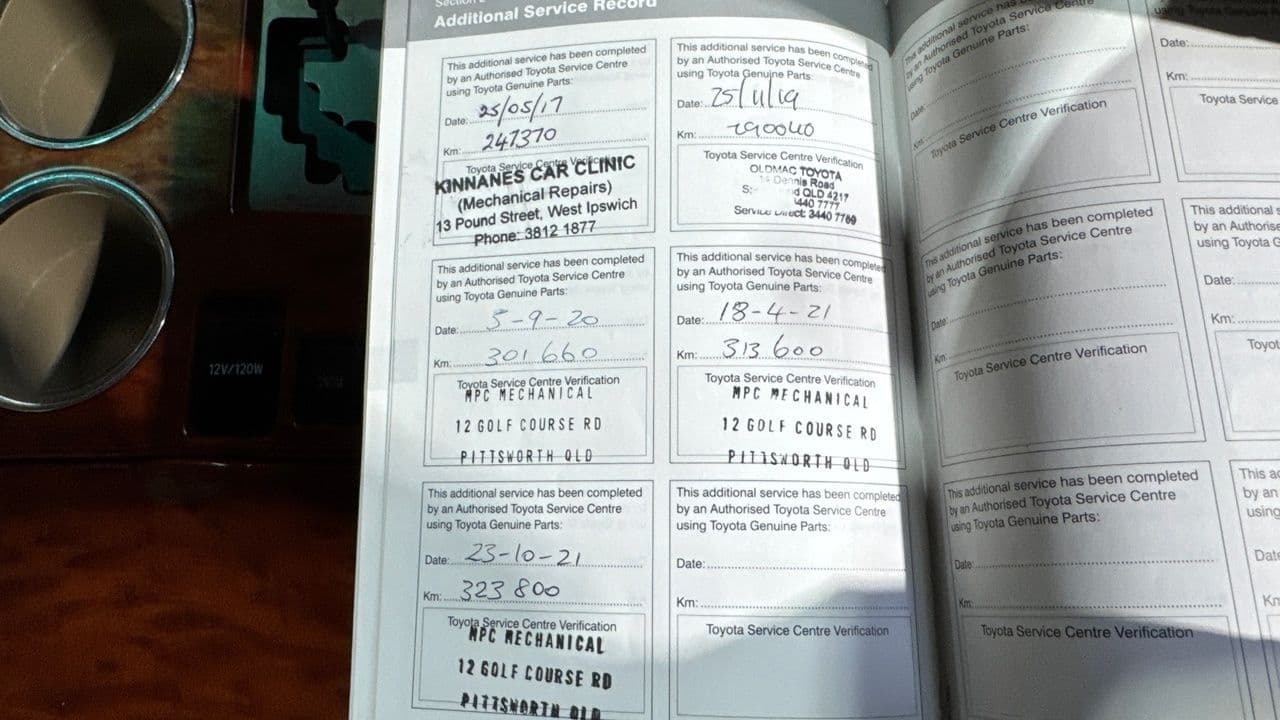 Additional Service Record
This additional service has been completed
by an Authorised Toyota Service Centre
using Toyota Genuine Parts:
Date: 25/05/17
Km: 247370
Toyota Service Centre Verification
KINNANES CAR CLINIC
(Mechanical Repairs)
13 Pound Street, West Ipswich
Phone: 3812 1877
This additional service has been completed
by an Authorised Toyota Service Centre
using Toyota Genuine Parts:
Date: 25/11/19
Km: 290040
Toyota Service Centre Verification
OLDMAC TOYOTA
Dennis Road
QLD 4217
440 7777
Service Direct: 3440 7769
This additional service has been completed
by an Authorised Toyota Service Centre
using Toyota Genuine Parts:
Date: 5-9-20
Km: 301 660
Toyota Service Centre Verification
MPC MECHANICAL
12 GOLF COURSE RD
PITTSWORTH QLD
This additional service has been completed
by an Authorised Toyota Service Centre
using Toyota Genuine Parts:
Date: 18-4-21
Km: 313 600
Toyota Service Centre Verification
MPC MECHANICAL
12 GOLF COURSE RD
PITTSWORTH QLD
This additional service has been completed
by an Authorised Toyota Service Centre
using Toyota Genuine Parts:
Date: 23-10-21
Km: 323 800
Toyota Service Centre Verification
MPC MECHANICAL
12 GOLF COURSE RD
PITTSWORTH QLD
This additional service has been completed
by an Authorised Toyota Service Centre
using Toyota Genuine Parts:
Date:
Km:
Toyota Service Centre Verification
This additional service has
by an Authorised Toyota Service Centre
using Toyota Genuine Parts:
Date:
Km:
Toyota Service Centre Verification
This additional service has been completed
by an Authorised Toyota Service Centre
using Toyota Genuine Parts:
Date:
Km:
Toyota Service Centre Verification
This additional service has been completed
by an Authorised Toyota Service Centre
using Toyota Genuine Parts:
Date:
Km:
Toyota Service Centre Verification
Date:
Km:
Toyota Service
This additional
by an
using Toyota
Date:
Km:
This
by an
using
12V/120W